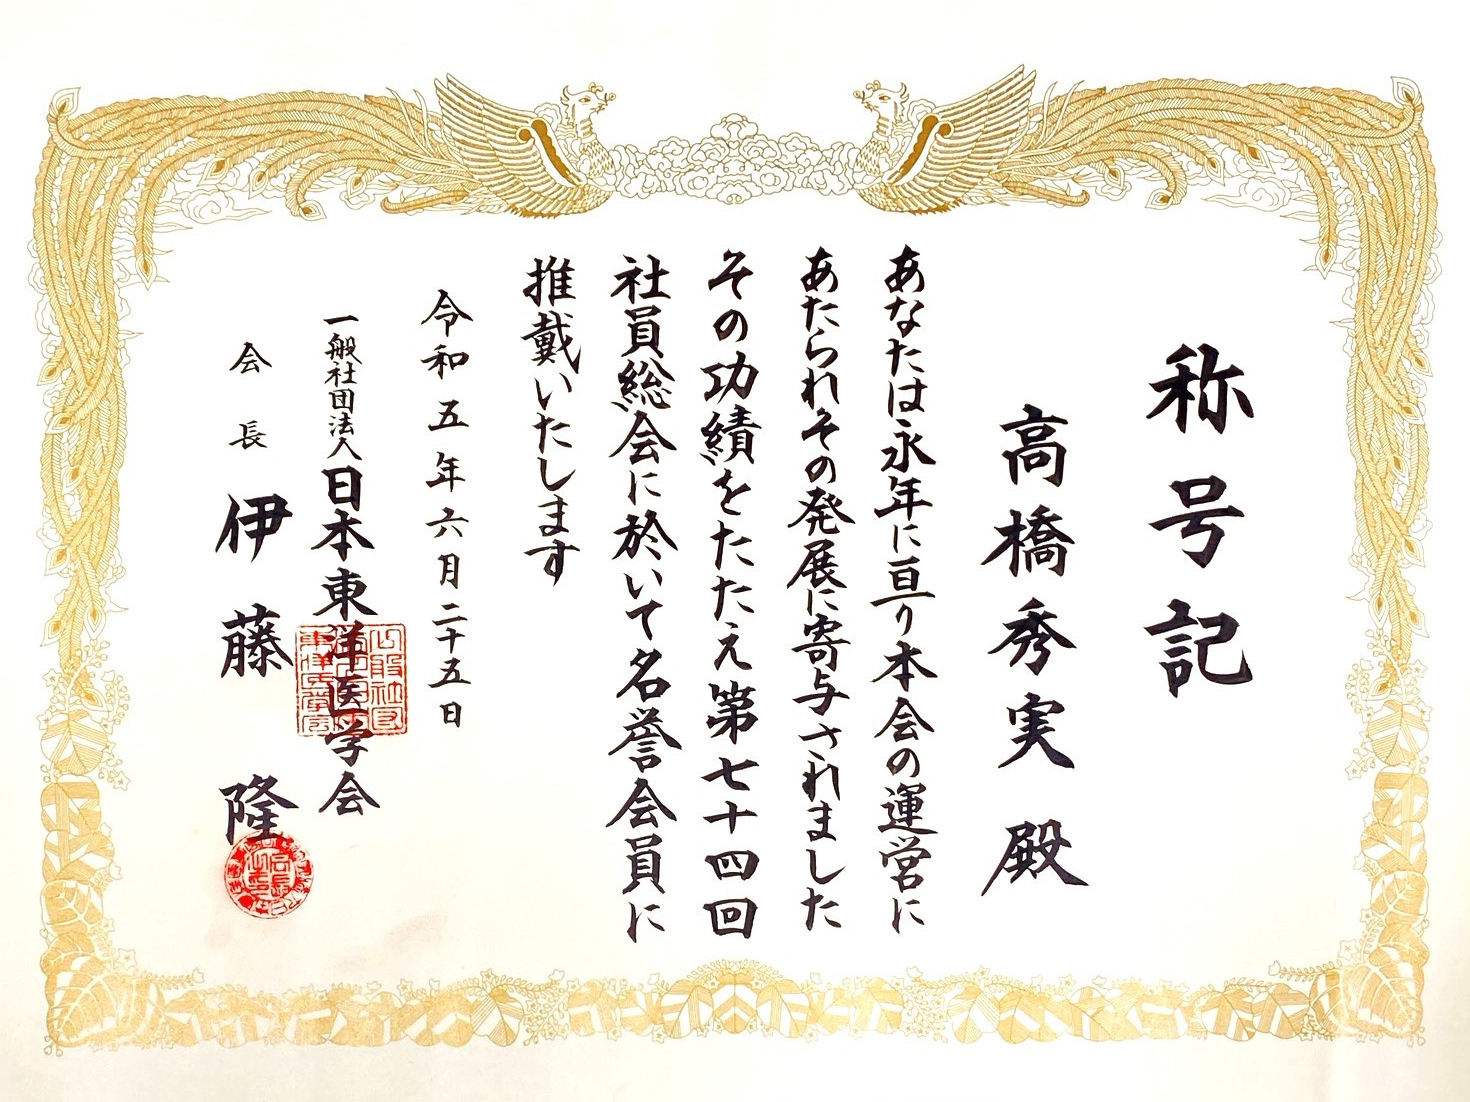 称号記
高橋秀実 殿
あなたは永年に亘り本会の運営に
あたられその発展に寄与されました
その功績をたたえ第七十四回
社員総会に於いて名誉会員に
推戴いたします
令和五年六月二十五日
一般社団法人日本東洋医学会
会長 伊藤 隆